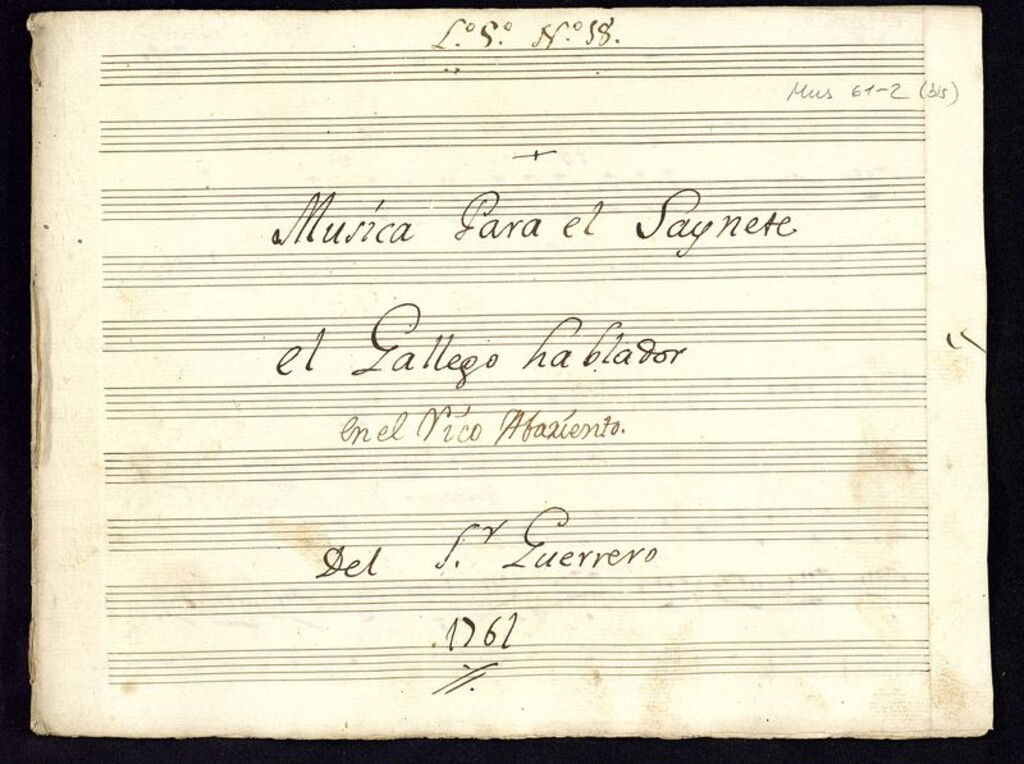 L.o 5.o N.o 18.
Mus 61-2 (bis)
Musica Para el Saynete
el Gallego hablador
en el Rico Abariento.
Del S.r Guerrero
1761